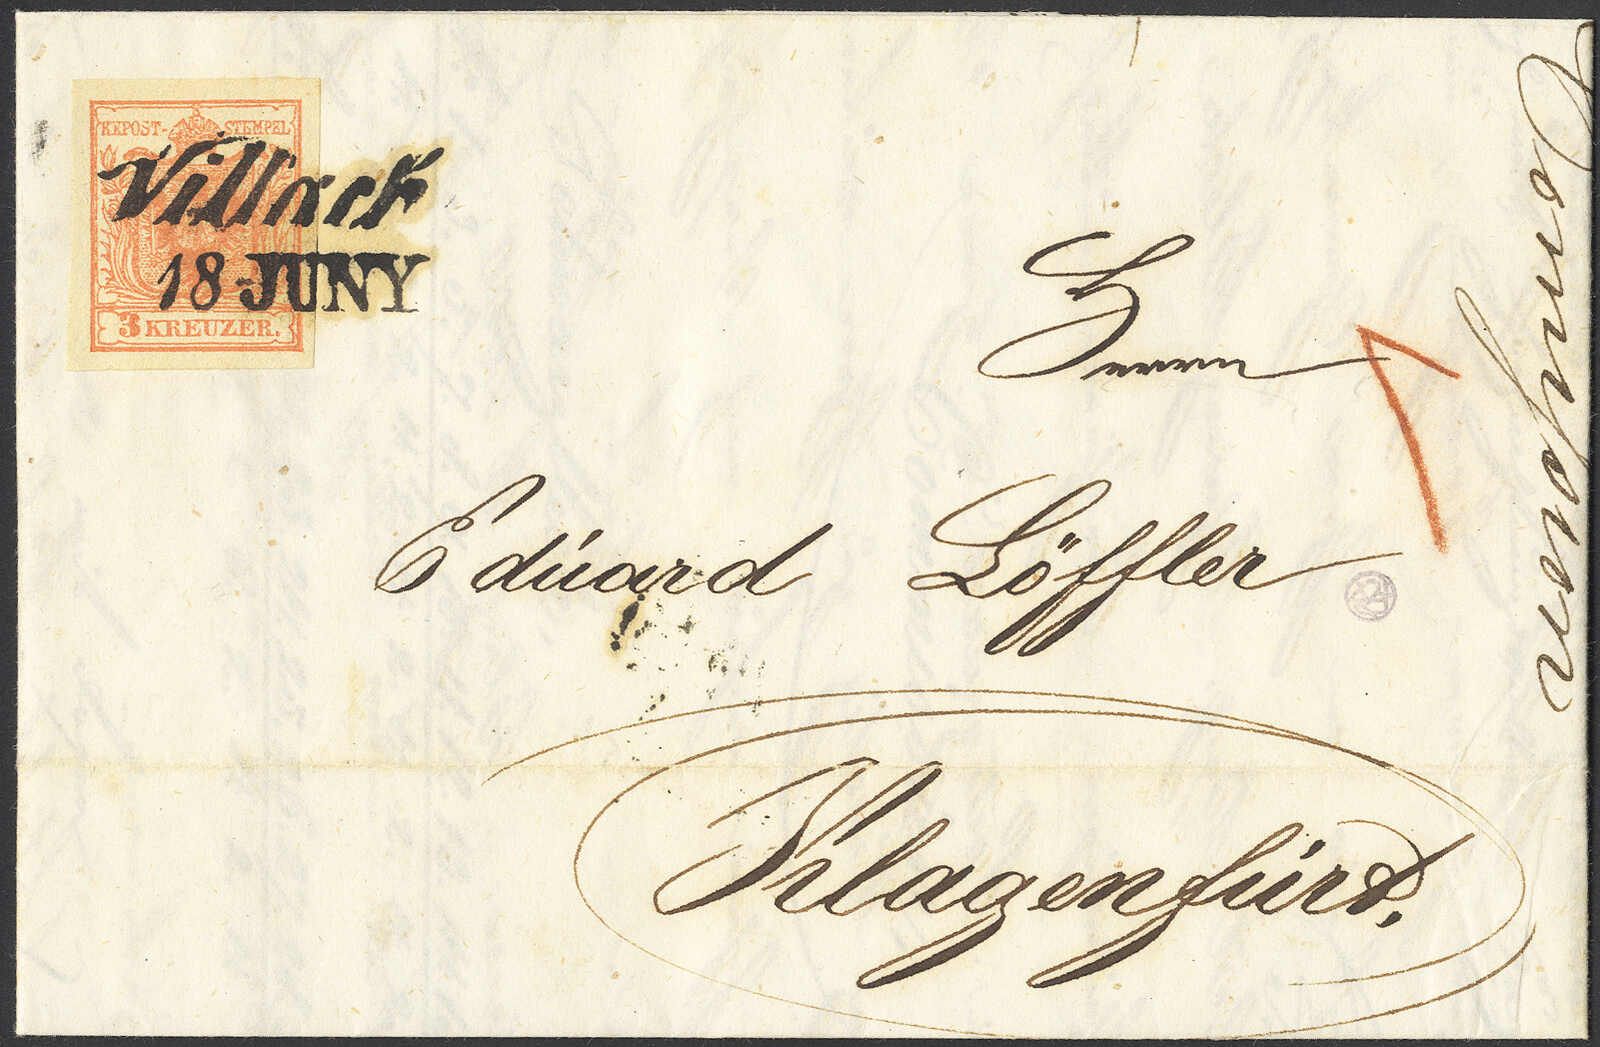 KKPOST-STEMPEL
Villach
18 JUNY
3 KREUZER.
Herrn
Eduard Löffler
Klagenfurt.